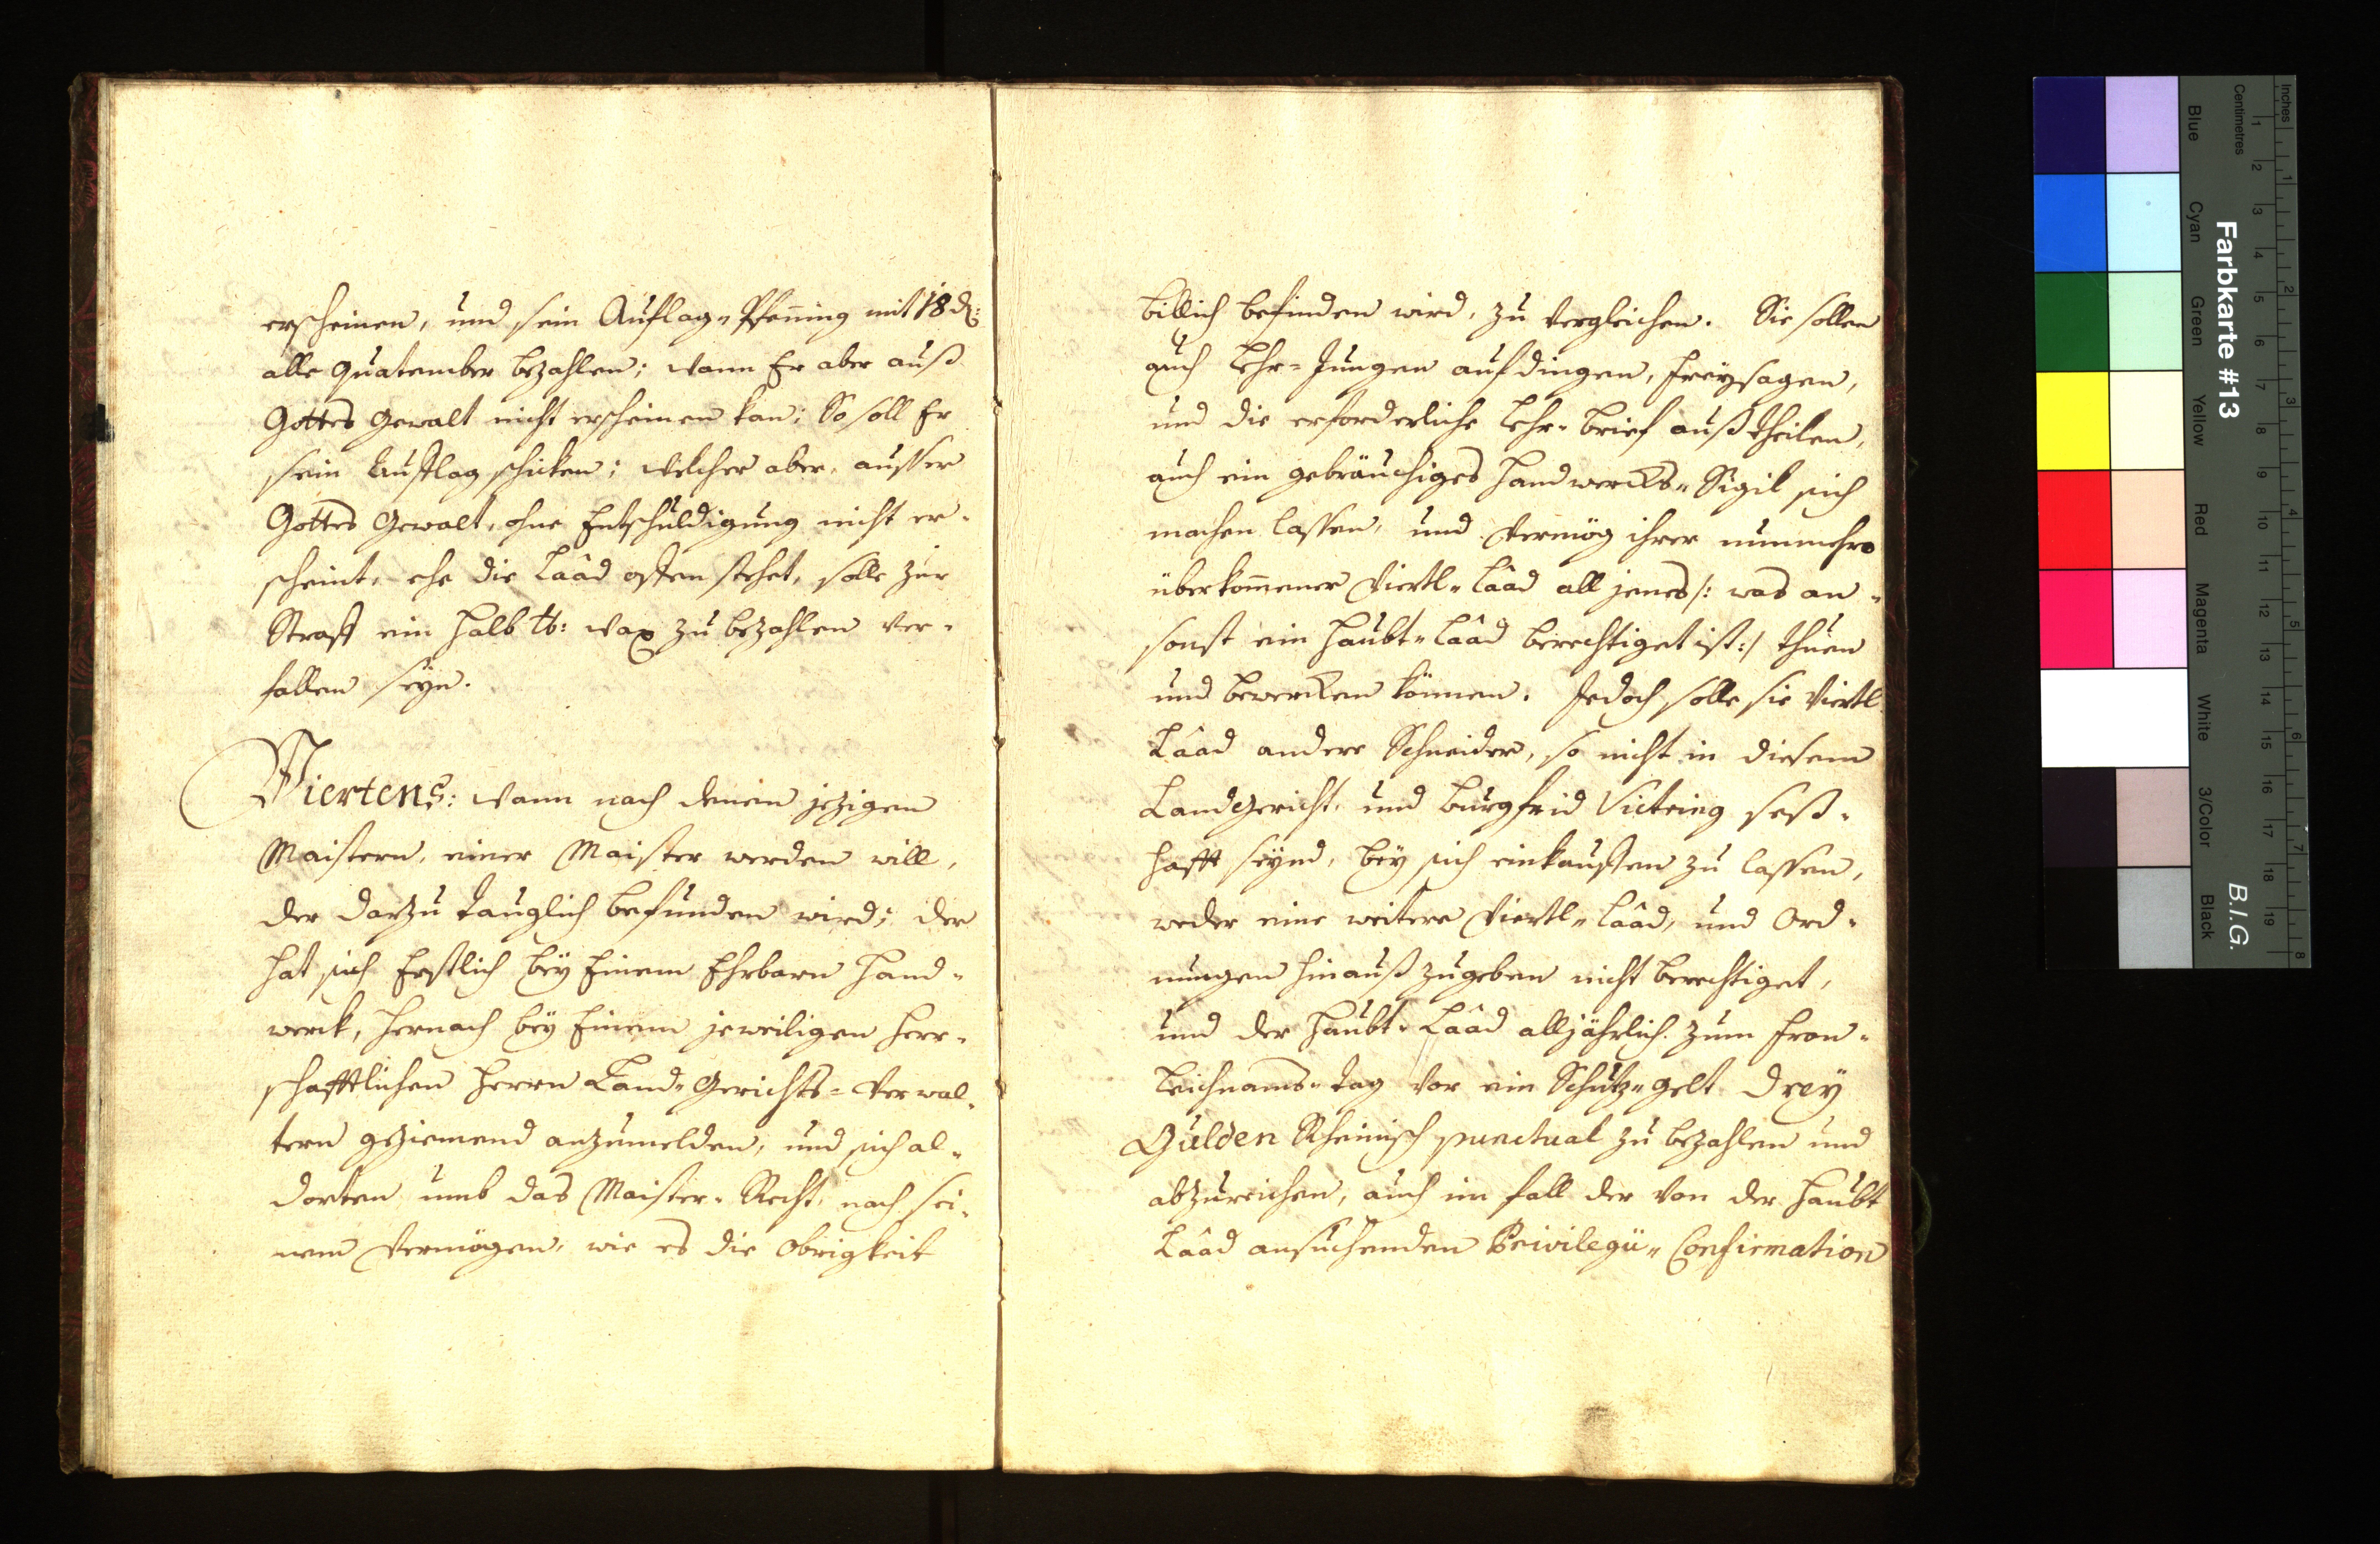 erscheinen, und sein Auflag„Pfenning mit 18 d:
alle Quatember bezahlen; wann Er aber auß
Gottes Gewalt nicht erscheinen kan; So soll Er
sein Aufflag schicken; welcher aber, ausser
Gottes Gewalt, ohne Entschuldigung nicht er-
scheint, ehe die Laâd offen stehet, solle zur
Straff ein halb ℔: Wax zu bezahlen ver-
fallen seÿn.
Viertens: Wann nach denen jezigen
Maistern, einer Maister werden will,
der darzu tauglich befunden wird; der
hat sich Erstlich beÿ Einem Ehrbarn Hand-
werck, hernach beÿ Einem jeweiligen Herr-
schafftlichen Herrn Land-Gerichts-Verwal-
tern geziemend anzumelden, und sich al-
dorten umb das Maister-Recht, nach sei-
nem Vermögen, wie es die Obrigkeit
billich befinden wird, zu vergleichen. Sie sollen
auch Lehr-Jungen aufdingen, freÿsagen,
und die erforderliche Lehr-brief außtheilen,
auch ein gebräuchiges Handwercks„Sigil sich
machen lassen, und vermög ihrer nunmehro
überkommener Viertl„Laâd all jenes /: was an-
sonst ein Haubt„Laâd berechtiget ist:/ thuen
und bewercken können. Jedoch solle sie Viertl
Laâd andere Schneider, so nicht in diesem
Landgericht, und Burgfrid Victring seß-
hafft seÿnd, beÿ sich einkauffen zu lassen,
weder eine weitere Viertl„Laâd, und Ord-
nungen hinauß zugeben nicht berechtiget,
und der Haubt-Laâd alljährlich zum Fron-
leichnams-Tag vor ein Schutz„gelt Dreÿ
Gulden Rheinisch punctual zu bezahlen und
abzureichen, auch im fall der von der Haubt
Laâd ansuchenden Privilegii„Confirmation
Farbkarte #13
B.I.G.
Inches
1 2 3 4 5 6 7 8
Centimetres
1 2 3 4 5 6 7 8 9 10 11 12 13 14 15 16 17 18 19
Blue
Cyan
Green
Yellow
Red
Magenta
White
3/Color
Black